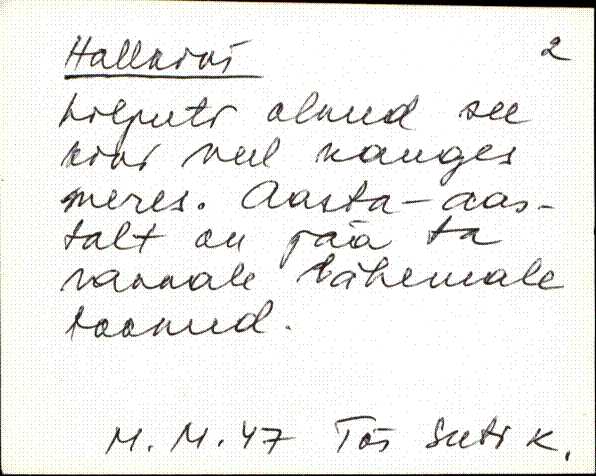 Hallkivi 2
Hiljuti olnud see
kivi veel kauges
meres. Aasta-aas-
talt on jää ta
rannale lähemale
toonud.
M. M. 47 Tõs Suti k.